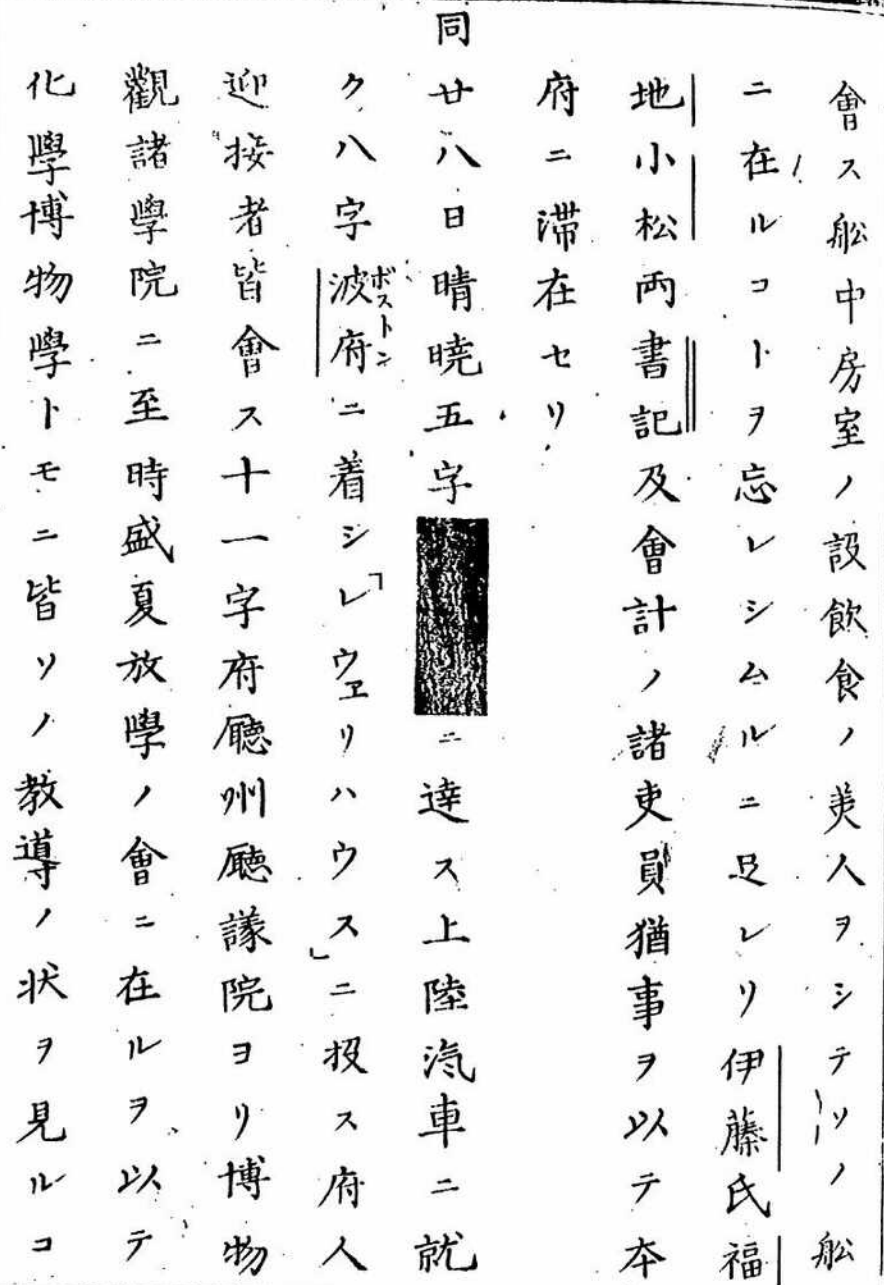 會ス舩中房室ノ設飲食ノ美人ヲシテソノ舩
ニ在ルコトヲ忘レシムルニ足レリ伊藤氏福
地小松両書記及會計ノ諸吏員猶事ヲ以テ本
府ニ滞在セリ
同廿八日晴暁五字ニ達ス上陸汽車ニ就
ク八字波府ニ着シ「レウェリハウス」ニ投ス府人
ボストン
迎接者皆會ス十一字府廳州廳議院ヨリ博物
觀諸學院ニ至時盛夏放學ノ會ニ在ルヲ以テ
化學博物學トモニ皆ソノ教導ノ状ヲ見ルコ